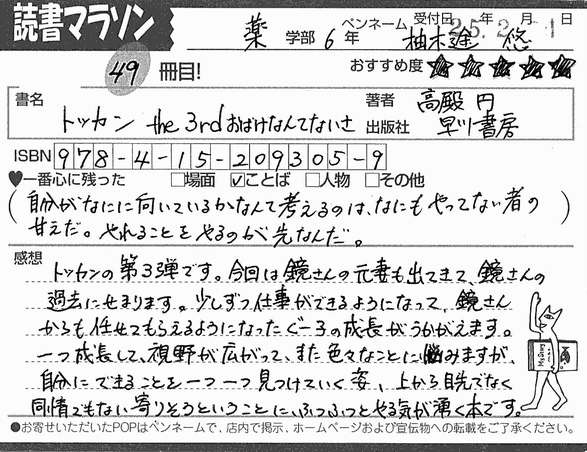 読書マラソン
薬 学部 6 年 ペンネーム 柚木進 悠 受付日 25年 2月 1日
49 冊目! おすすめ度 ★★★★★
書名 トッカン the 3rd おばけなんてないさ
著者 高殿 円
出版社 早川書房
ISBN 978-4-15-209305-9
♥一番心に残った □場面 ☑ことば □人物 □その他
(自分がなにに向いているかなんて考えるのは、なにもやってない者の
甘えだ。やれることをやるのが先なんだ。)
感想
トッカンの第3弾です。今回は鏡さんの元妻も出てきて、鏡さんの
過去にせまります。少しずつ仕事ができるようになって、鏡さん
からも任せてもらえるようになったぐー子の成長がうかがえます。
一つ成長して、視野が広がって、また色々なことに悩みますが、
自分にできることを一つ一つ見つけていく姿、上から目先でなく
同情でもない寄りそうということにふつふつとやる気が湧く本です。
●お寄せいただいたPOPはペンネームで、店内で掲示、ホームページおよび宣伝物への転載をご了承ください。